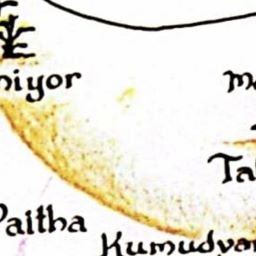 niyor
Ma
Tal
Paitha
Kumudvar